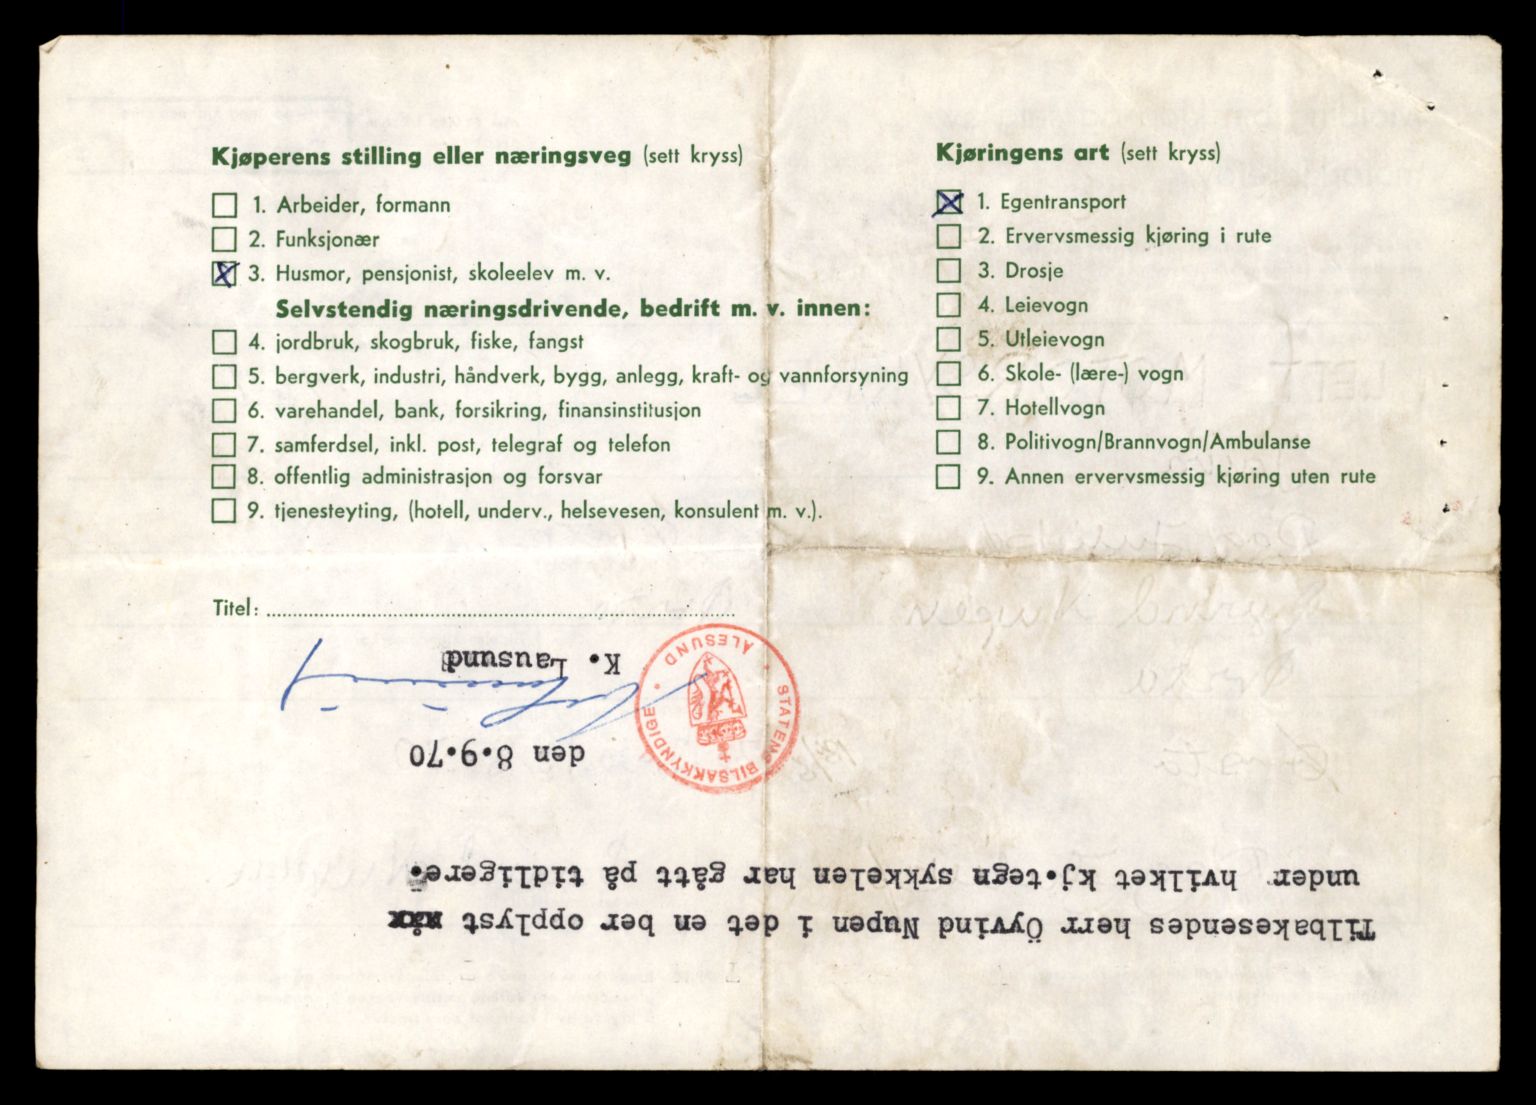 Kjøperens stilling eller næringsveg (sett kryss)
1. Arbeider, formann
2. Funksjonær
3. Husmor, pensjonist, skoleelev m. v.
Selvstendig næringsdrivende, bedrift m. v. innen:
4. jordbruk, skogbruk, fiske, fangst
5. bergverk, industri, håndverk, bygg, anlegg, kraft- og vannforsyning
6. varehandel, bank, forsikring, finansinstitusjon
7. samferdsel, inkl. post, telegraf og telefon
8. offentlig administrasjon og forsvar
9. tjenesteyting, (hotell, underv., helsevesen, konsulent m. v.).
Titel:
Kjøringens art (sett kryss)
1. Egentransport
2. Ervervsmessig kjøring i rute
3. Drosje
4. Leievogn
5. Utleievogn
6. Skole- (lære-) vogn
7. Hotellvogn
8. Politivogn/Brannvogn/Ambulanse
9. Annen ervervsmessig kjøring uten rute
Tilbakesendes herr Öyvind Nupen i det en ber opplyst
under hvilket kj.tegn sykkelen har gått på tidligere.
den 8.9.70
STATENS BILSAKKYNDIGE • ÅLESUND
K. Lausund